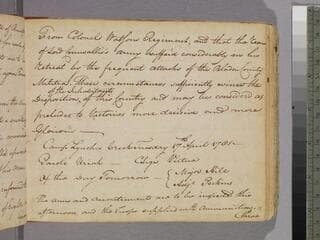 From Colonel Watsons Regiment, and that the Rear
of Lord Cornwallis's Army suffered considerably in his
Retreat by the frequent attacks of the Bladen County
Militia, these circumstances sufficiently evince the
of the Inhabitants
Disposition, of this Country and may be considered as
preludes to Victories more decisive and more
Glorious —
Camp Lynches Creek Tuesday 17th April 1781 —
Parole Uriah — Sign Virtue
of the Day Tomorrow — Major Hill
Perkins
The arms and accoutrements are to be inspected this
afternoon and the Troops supplied with Ammunition